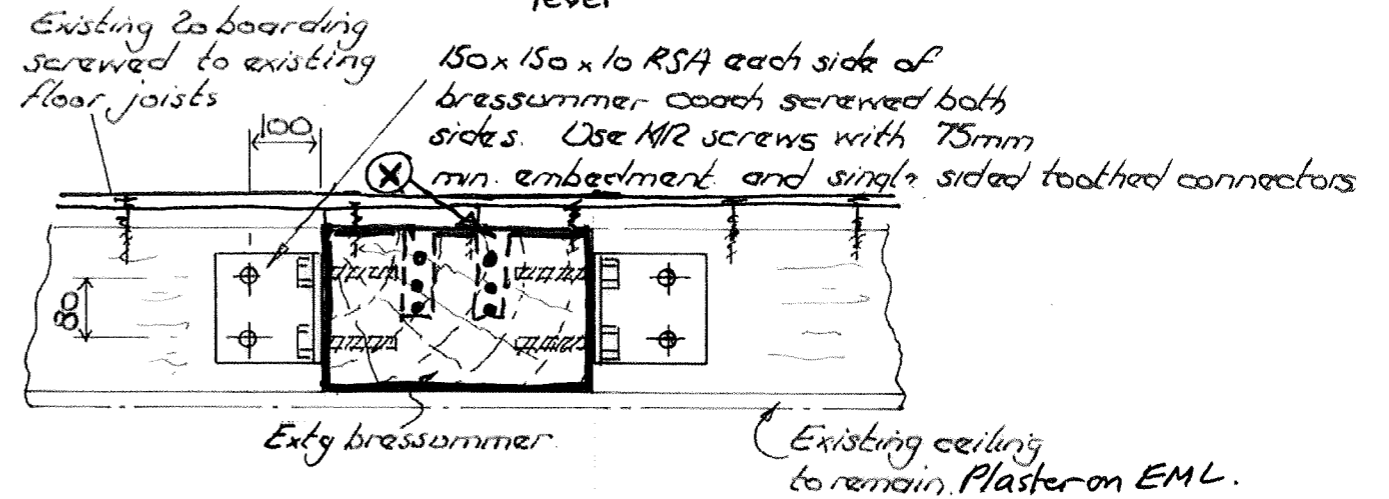 level
Existing 20 boarding
screwed to existing
floor joists
150 x 150 x 10 RSA each side of
bressummer coach screwed both
sides. Use M12 screws with 75mm
min. embedment and single sided toothed connectors
100
X
80
Extg bressummer
Existing ceiling
to remain. Plaster on EML.